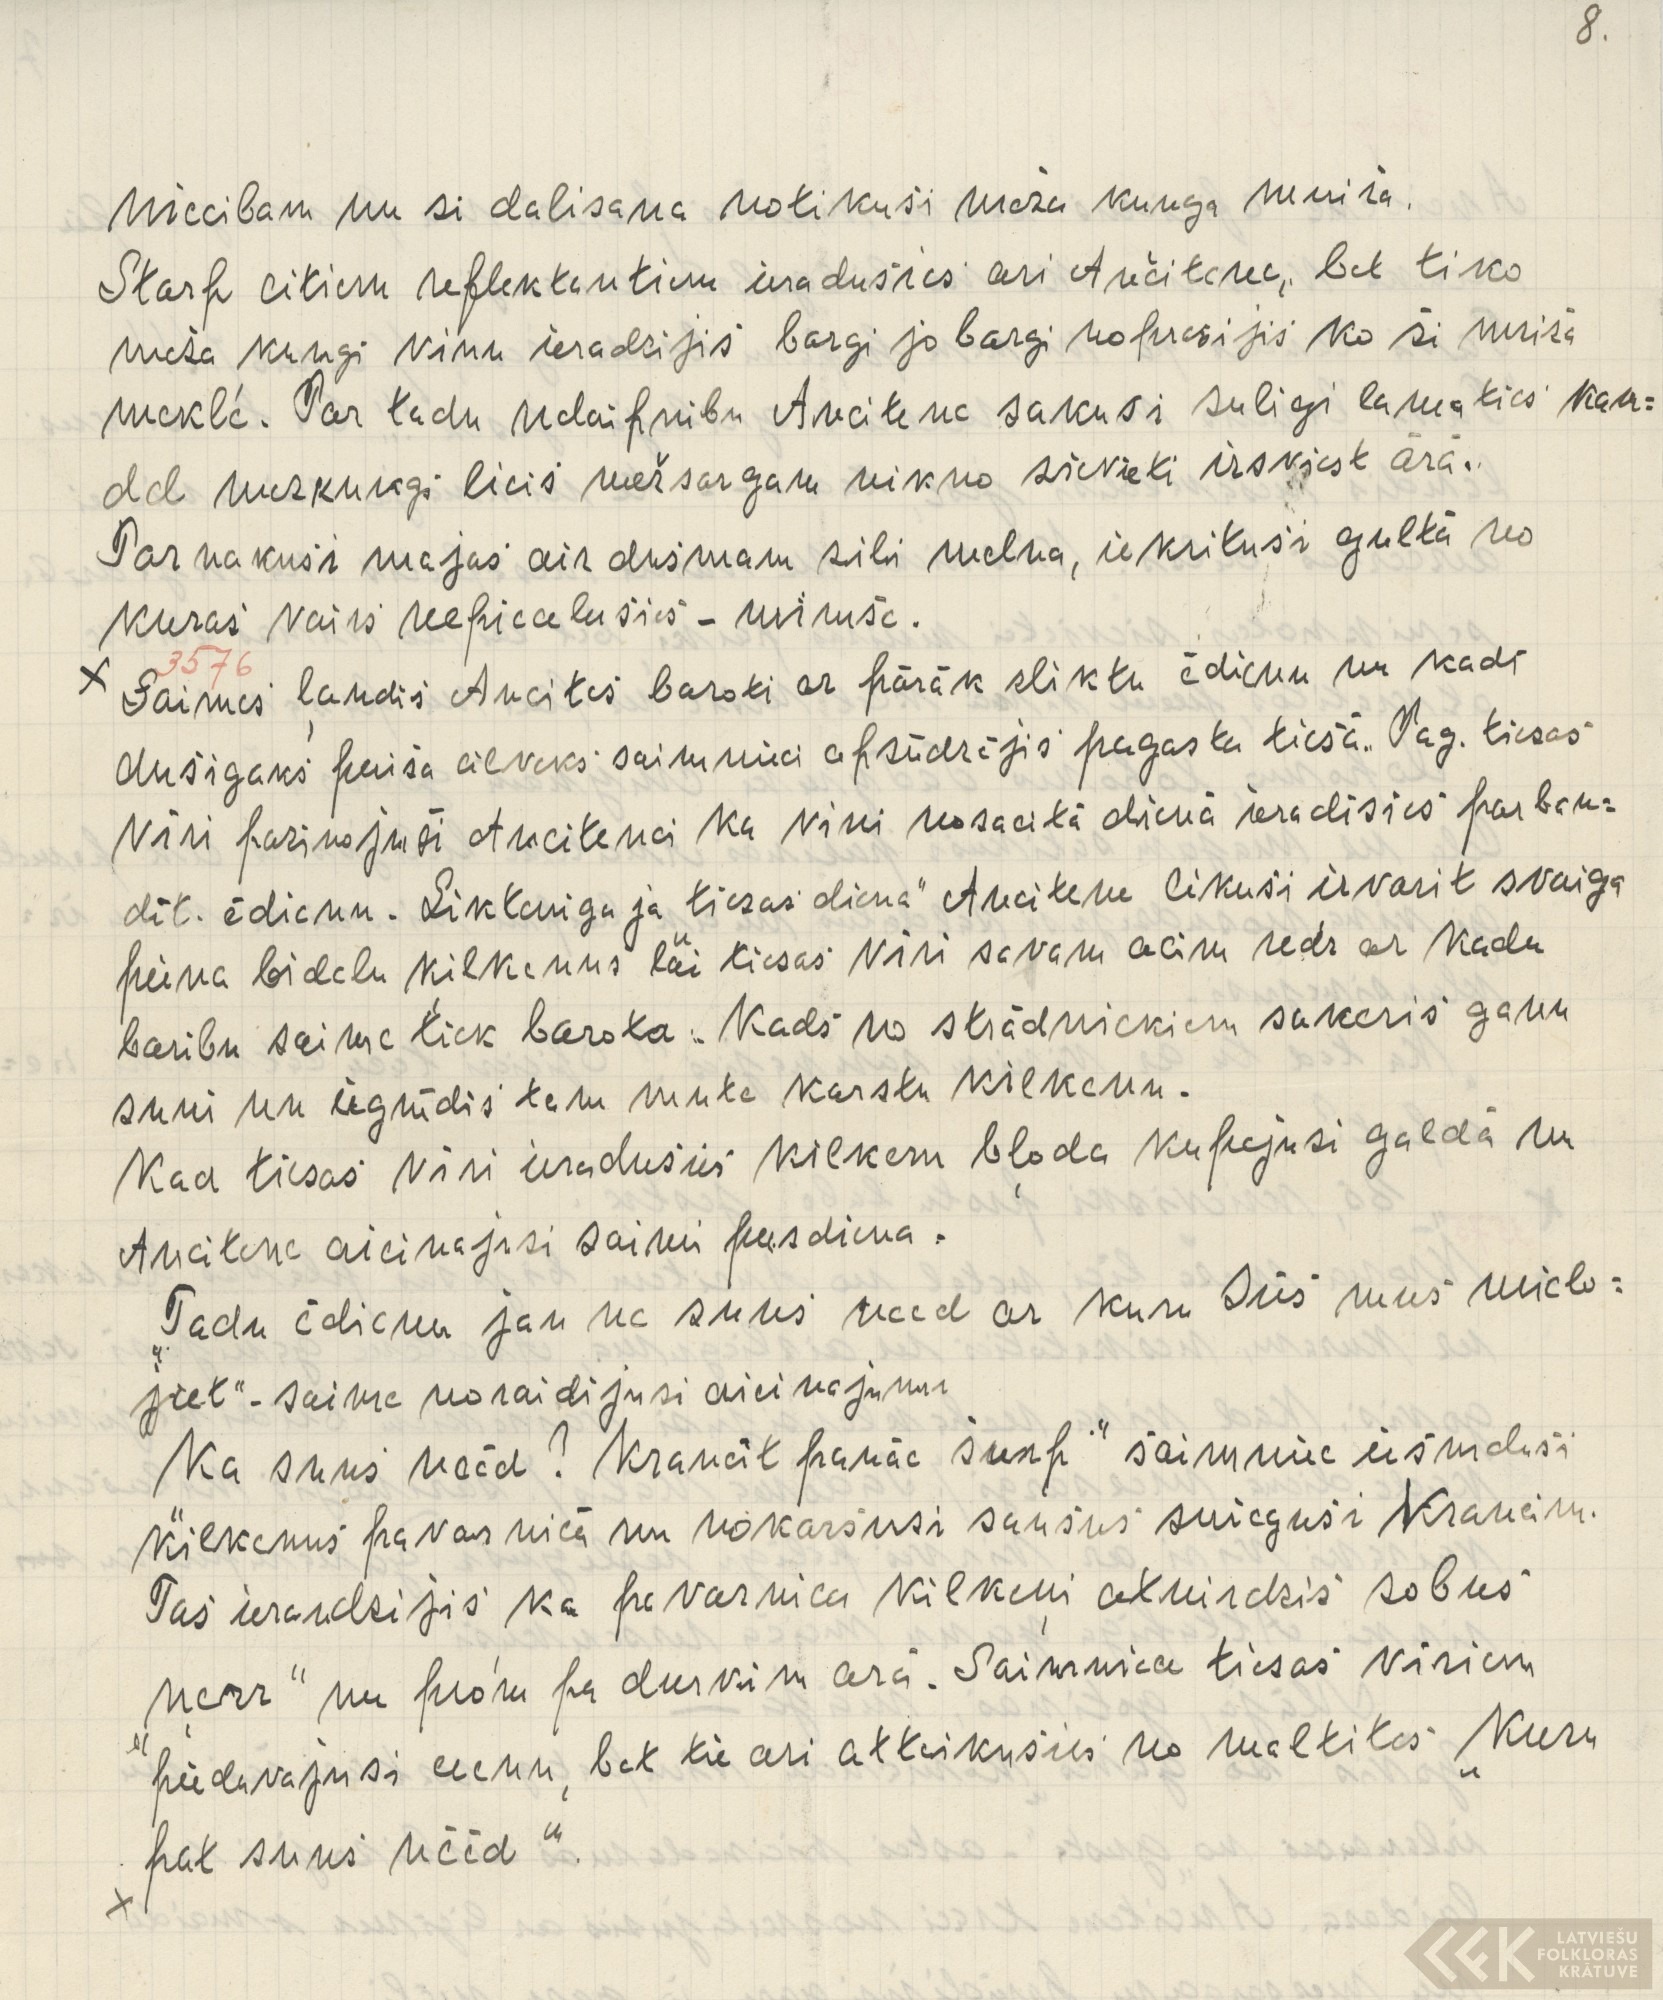 8.
niecibam un si dalisana notikusi meža kunga muiža.
Starp citiem reflektantiem ieradusies ari Ancitene, bet tiko
meža kungs vinu ieradzijis bargi jo bargi noprasijis ko ši muiža
meklé. Par tadu nelaipnibu Ancitene sakusi zuligi lamaties kan=
del mezkungs licis mežsargam nikno sievieti izsviest ārā.
Parnakusi majas aiz dusmam zili melna, iekritusi gultā no
kuras vairs nepieceļusies - miruse.
3576
x Saimes ļaudis Ancites baroti ar pārāk sliktu ēdienu un kads
dusigaks puisa cilveks saimnieci apsūdzējis pagasta tiesā. Pag. tiesas
viri pazinojuši Ancitenei ka vini nosacitā dienā ieradisies parbau=
dīt. ēdienu. Liktenigaja "tiesas diena" Ancitene likusi izvarit svaiga
piena bidelu kilkenus lai tiesas viri savam acim redz ar kadu
baribu saime tiek barota. Kads no strādniekiem sakeris ganu
suni un iegrūdis tam mute karstu kilkenu.
Kad tiesas viri ieradusies kilkenu bļoda kupejusi galdā un
Ancitene aicinajusi saimi pusdiena.
"Tadu ēdienu jau ne suns need ar kuru Jūs mus mielo=
jiet" - saime noraidijusi aicinajumu
"Ka suns neēd? Krancīt panāc šurp" saimniece iesmelusi
kilkenus pavarnicā un nokarsusi sausus sniegusi Krancim.
Tas ieraudzijis ka pavarnica kilkeņi atnirdzis zobus
"ņerr" un prom pa durvim arā. Saimniece tiesas viriem
piedavajusi eenu, bet tie ari atteikusies no maltites "kuru
pat suns nēēd".
x
LATVIEŠU
FOLKLORAS
KRĀTUVE